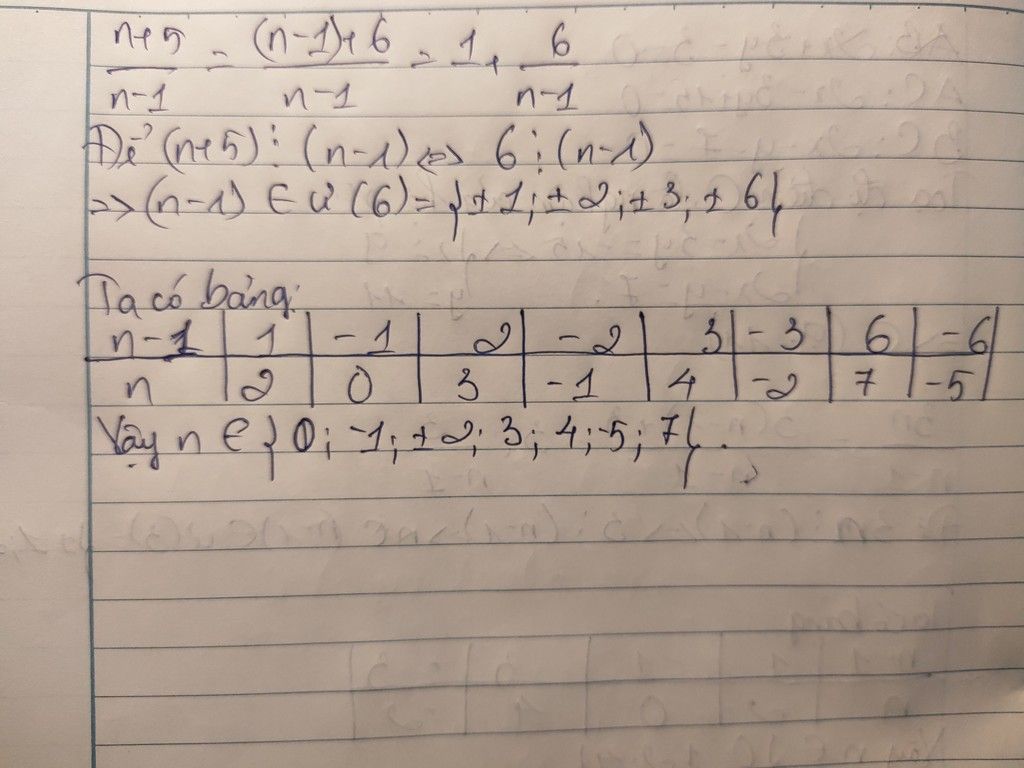 n+5/n-1 = (n-1)+6/n-1 = 1 + 6/n-1
Để (n+5) ⋮ (n-1) ⇔ 6 ⋮ (n-1)
=> (n-1) ∈ Ư(6) = {±1; ±2; ±3; ±6}
Ta có bảng:
n-1 | 1 | -1 | 2 | -2 | 3 | -3 | 6 | -6
n | 2 | 0 | 3 | -1 | 4 | -2 | 7 | -5
Vậy n ∈ {0; -1; ±2; 3; 4; -5; 7}.